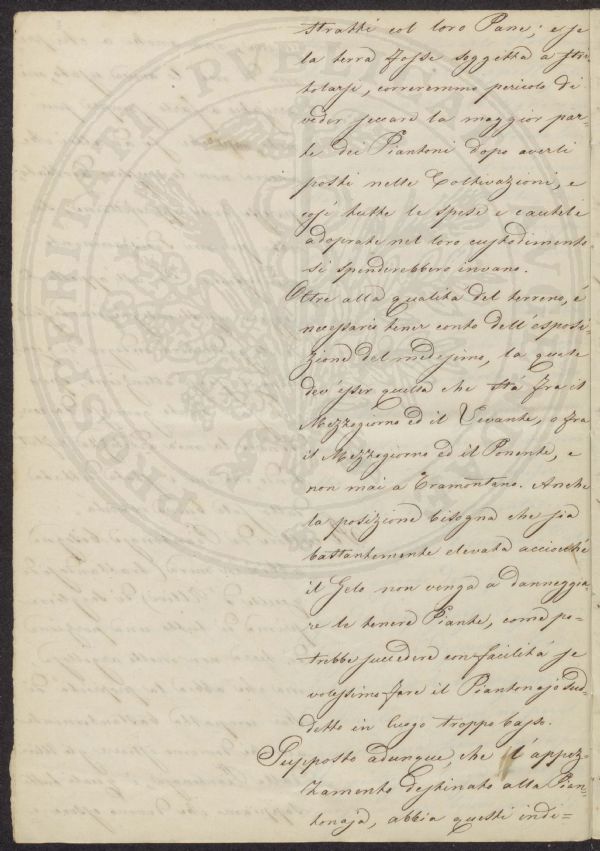 stratti col loro Pane; e se
la terra fosse soggetta a stri-
tolarsi, correremmo pericolo di
veder seccare la maggior par-
te dei Piantoni dopo averli
posti nelle Coltivazioni, e
così tutte le spese e cautele
adoprate nel loro custodimento
si spenderebbero invano.
Oltre alla qualità del terreno, é
necessario tener conto dell'esposi-
zione del medesimo, la quale
dev'esser quella che stá fra il
Mezzogiorno ed il Levante, o fra
il Mezzogiorno ed il Ponente, e
non mai a Tramontano. Anche
la posizione bisogna che sia
bastantemente elevata acciocché
il Gelo non venga a danneggia-
re le tenere Piante, come po-
trebbe succedere con facilitá se
volessimo fare il Piantonajo sud-
detto in luogo troppo basso.
Supposto adunque, che l'appez-
zamento destinato alla Pian-
tonaja, abbia questi indi-
PROSPERITATEM PVBLICAM